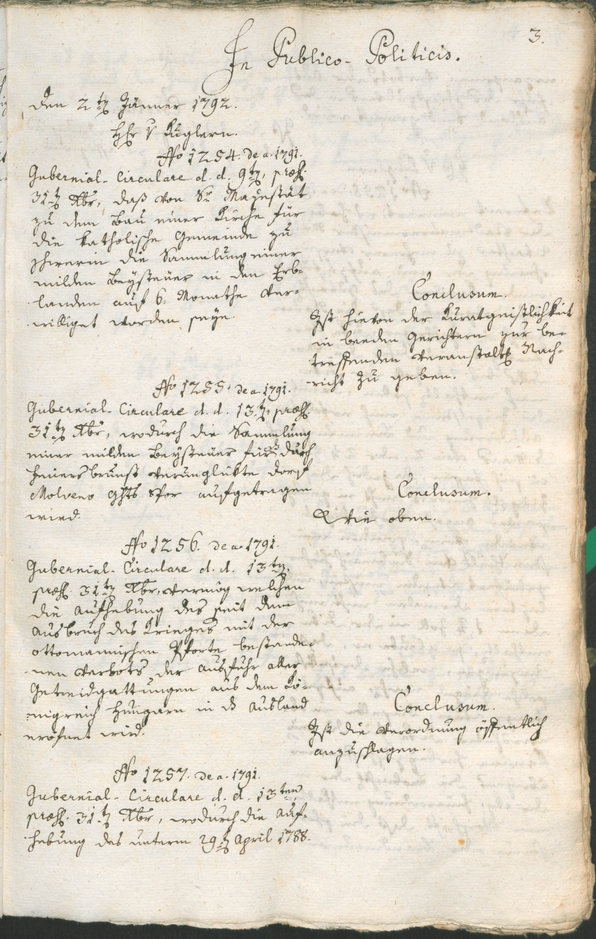 3.
In Publico-Politicis.
den 2ten Jänner 1792.
Hr v Kuglern.
No 1254. de a. 1791.
Gubernial-Circulare d. d. 9ten, præs.
31ten Xbr, daß von Sr Mayestät
zu dem Bau einer Kirche für
die katholische Gemeinde zu
Schwerin die Sammlung einer
milden Beysteuer in den Erb-
landen auf 6 Monathe ver-
williget worden seye.
Conclusum.
Ist hievon der Kuratgeistlichkeit
in beeden Gerichtern zur be-
treffenden Veranstaltg Nach-
richt zu geben.
No 1255. de a. 1791.
Gubernial-Circulare d. d. 13ten, præs.
31ten Xbr, wodurch die Sammlung
einer milden Beysteuer für das durch
Feuersbrunst verunglükte Dorf
Molveno Ghts Spor aufgetragen
wird.
Conclusum.
Wie oben.
No 1256. de a. 1791.
Gubernial-Circulare d. d. 13ten,
præs. 31ten Xbr, vermög welchen
die Aufhebung des seit dem
Ausbruch des Krieges mit der
ottomanischen Pforte bestande-
nen Verbots der Ausfuhr aller
Getreidgattungen aus dem Kö-
nigreich Hungarn in d Ausland
eröfnet wird.
Conclusum.
Ist die Verordnung öffentlich
anzuschlagen.
No 1257. de a. 1791.
Gubernial-Circulare d. d. 13ten
præs. 31ten Xbr, wodurch die Auf-
hebung des unterm 29ten April 1788.